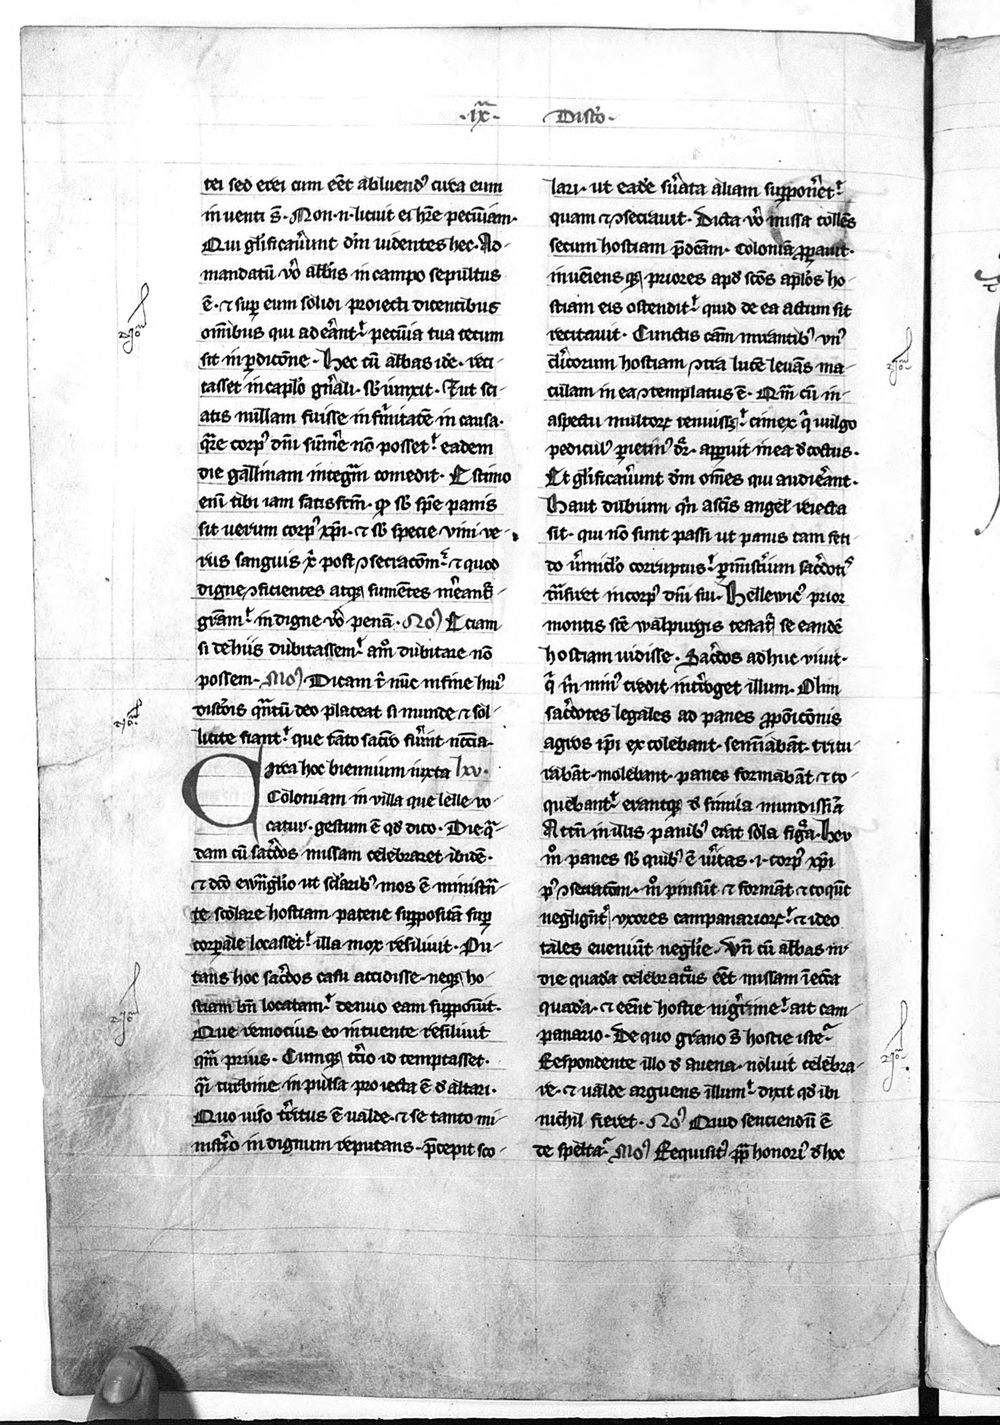 ·ix· Distō·
tei sed erei cum eēt abluendꝰ circa eum
inventi s̄· Non·n·licuit ei hr̄e pecuīam·
Qui gl̓ificav̓unt dm̄ videntes hec· Ad
mandatū v̓o abb̄is in campo sepultus
ē· ⁊ sup̱ eum solidi proiecti dicentibus
om̄ibus qui aderānt· pecuīa tua tecum
sit in p̱dicōne· Hec cū abbas ide· reci
tasset in caplō gn̄ali· sb̓iunxit· Aut sci
atis nullam fuisse infirmitatē in causa·
qr̄e corpꝰ dn̄i sum̄e nō posset· eadem
die gallinam integrām comedit· Estimo
em̄ tibi iam satisfcm̄· qd sb̓ spē panis
sit verum corpꝰ xp̄i· ⁊ sb̓ specie vini ve
rus sanguis x̄ post ɔsecracōm̄· ⁊ quod
digne ɔficientes atqꝫ sumētes
grām̄· indigne v̓o penā· Noꝰ Etiam
si de hiis dubitassem· am̊ dubitare nō
possem· Moꝰ· Dicam t̓ nūc in fine huiꝰ
distōis qn̄tū deo placeat si munde ⁊ sol
licite fiant· que tāto sac̓o sūnt nc̄cia·
Circa hoc biennium iuxta lxv·
Coloniam in villa que lelle vo
catur· gestum ē qd̓ dico· Die qͣ
dam cū sac̓dos missam celebraret ibidē·
⁊ dc̄o ewāglio ut scl̓aribꝰ mos ē ministrā
te scolare hostiam patene suppositā sup̱
corp̱ale locasset· illa mox resilivit· Pu
tans hoc sac̓dos casu accidisse· neqꝫ ho
stiam bn̄ locatam· denuo eam supposuit·
Que remotius eo intuente resilivit
qm̄ prius· Cumqꝫ tc̓io id temptasset·
qͣi turbine inpulsa proiecta ē d̓ altari·
Quo viso t̓ritus ē valde· ⁊ se tanto mi
nist̓io indignum reputans· p̄cepit sco
lari· ut eadē sublata aliam supponēt·
quam ⁊ ɔsecravit· Dicta v̓o missa tollēs
secum hostiam p̄dc̄am· coloniā pp̱avit·
inveniensqꝫ priores apd̓ sc̄os apl̓os ho
stiam eis ostendit· quid de ea actum sit
recitavit· Cunctis cām mirantibꝰ unꝰ
cl̓icorum hostiam ɔtra lucē levās ma
culam in ea ɔtemplatus ē· Qm̄ cū in
aspectu multorꝝ tenuiss· cimex q̄ vulgo
pediculꝰ p̱ietinꝰ dr̄· apparuit in ea d̓coctus·
Et gl̓ificav̓unt dm̄ om̄es qui audierānt·
Haut dubium qn̄ a sc̄is angel̓ reiecta
sit· qui nō sunt passi ut panis tam feti
do v̓miculo corruptus· p̱ minist̓ium sac̓dotꝰ
trāsiret in corpꝰ dn̄i sui· Hellewicꝰ prior
montis scē walpurgis testat̓ se eandē
hostiam vidisse· Sac̓dos adhuc vivit·
q̄ m̄ minꝰ credit int̓roget illum· Olim
sac̓dotes legales ad panes p̱posicōnis
agros ip̄i excolebant· seminabāt· tritu
rabāt· molebant· panes formabāt ⁊ co
quebant· erantqꝫ d̓ simila mundissīa
Attn̄ in illis panibꝰ erat sola figͣa· Heu
m̊ panes sb̓ quibꝰ ē v̓itas· i· corpꝰ xp̄i
pꝰ ɔsecratom· m̊ pinsūt ⁊ formāt ⁊ coqūt
negligent̓ uxores campanariorꝝ· ⁊ ideo
tales eveniūt neglīe· Un̄ cū abbas in
die quadā celebratus eēt missam ī ecc̄ia
quadā· ⁊ eēnt hostie nig̓rime· ait cam
panario· De quo grano s̄ hostie iste·
Respondente illo d̓ avena· noluit celebra
re· ⁊ valde arguens illum· dixit qd̓ ibi
nichil fieret· Noꝰ Quid senciendū ē
de spelta· Moꝰ Requisitꝰ pp̄ honoriꝰ d̓ hoc